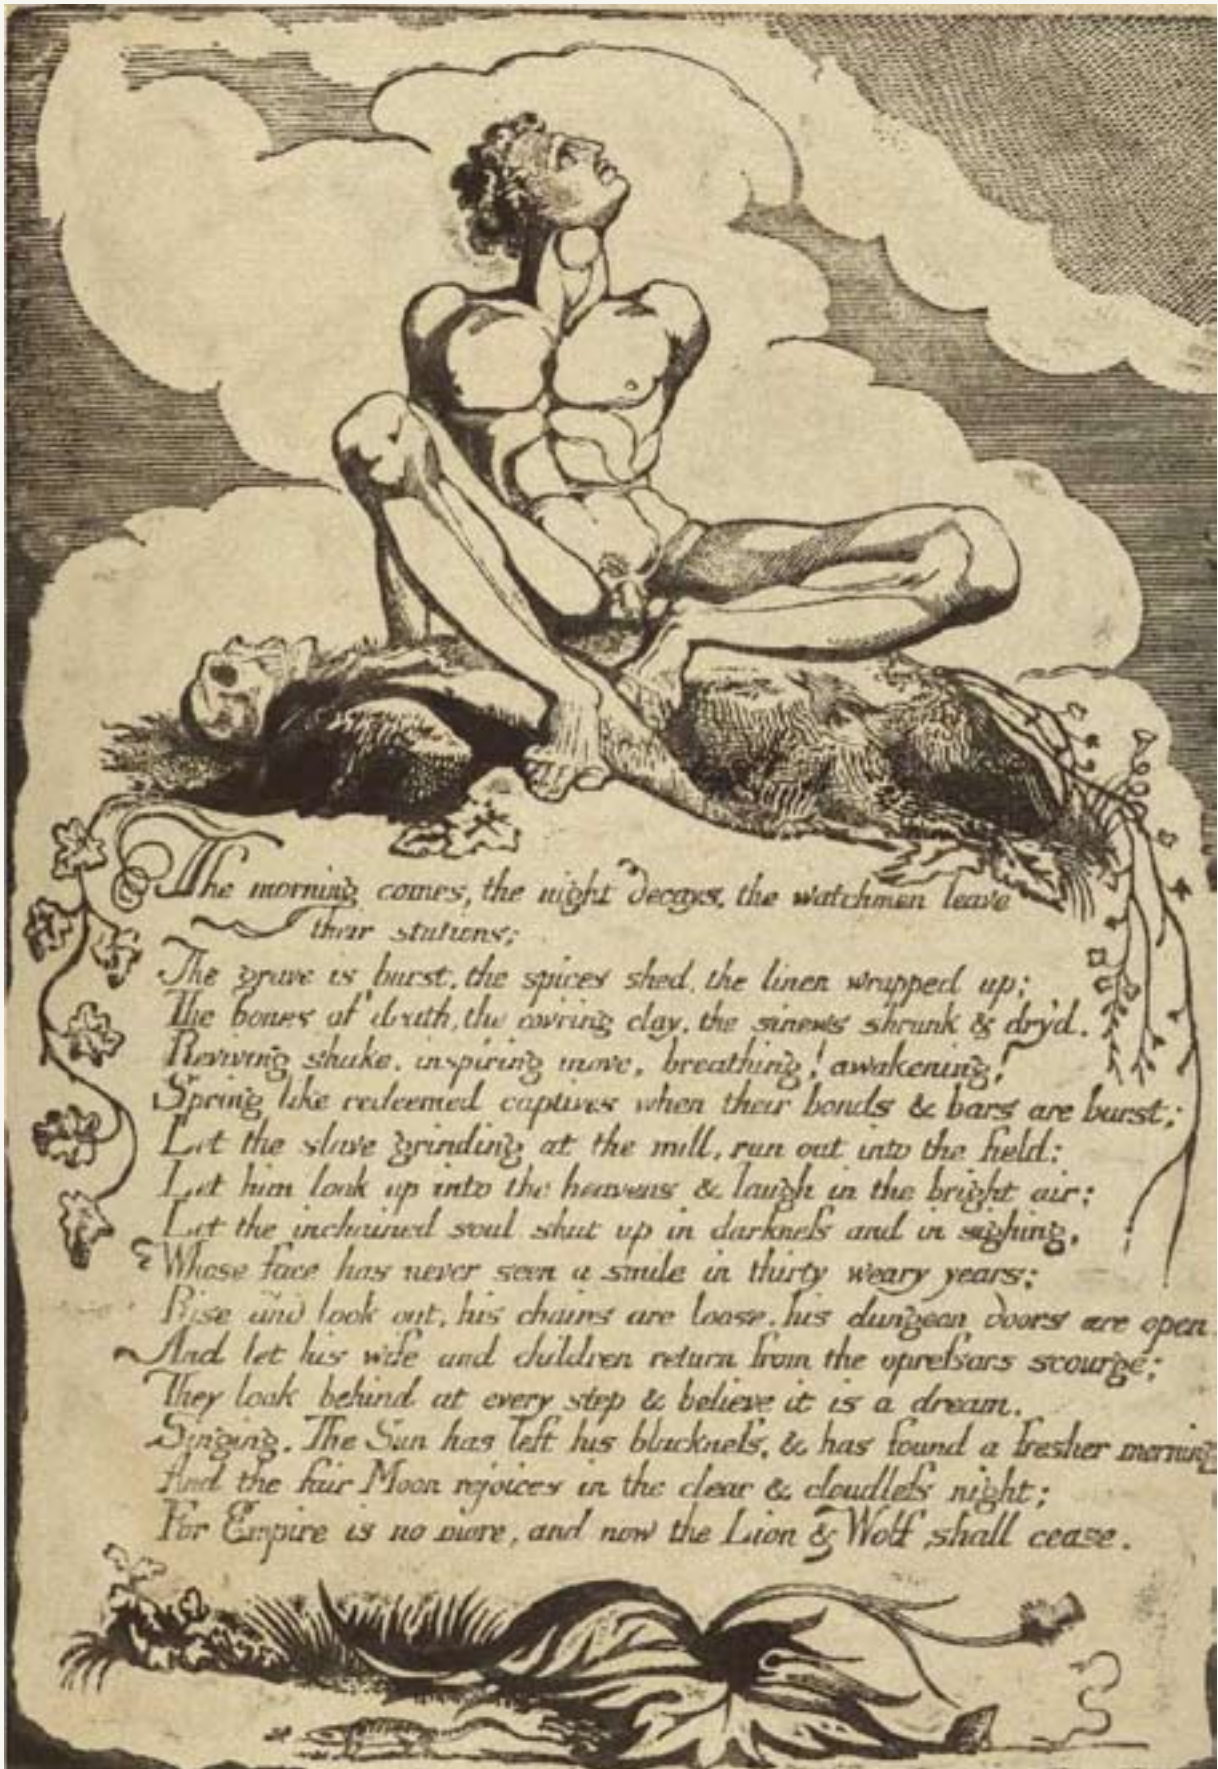 The morning comes, the night decays, the watchmen leave
their stations;
The grave is burst, the spices shed, the linen wrapped up;
The bones of death, the cov'ring clay, the sinews shrunk & dry'd.
Reviving shake, inspiring move, breathing! awakening!
Spring like redeemed captives when their bonds & bars are burst;
Let the slave grinding at the mill, run out into the field:
Let him look up into the heavens & laugh in the bright air;
Let the inchained soul shut up in darkneſs and in sighing,
Whose face has never seen a smile in thirty weary years;
Rise and look out, his chains are loose, his dungeon doors are open
And let his wife and children return from the opreſsors scourge;
They look behind at every step & believe it is a dream.
Singing. The Sun has left his blackneſs, & has found a fresher morning
And the fair Moon rejoices in the clear & cloudleſs night;
For Empire is no more, and now the Lion & Wolf shall cease.